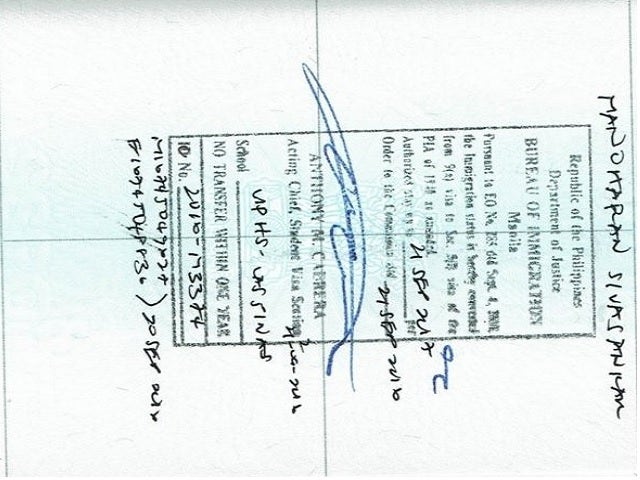 MANOHARAN SIVASANKAR
Republic of the Philippines
Department of Justice
BUREAU OF IMMIGRATION
Manila
Pursuant to EO No. 285 dtd Sept. 4, 2000
the immigration status is hereby converted
from 9(a) visa to Sec. 9(f) visa of the
PIA of 1940 as amended.
Authorized stay up to 21 SEP 2017 per
Order to the Commission dtd 21 SEP 2016
ANTHONY M. CABRERA
Acting Chief, Student Visa Section
School UPHS - LAS PINAS
NO TRANSFER WITHIN ONE YEAR
ID No. 2016-1733774
20 SEP